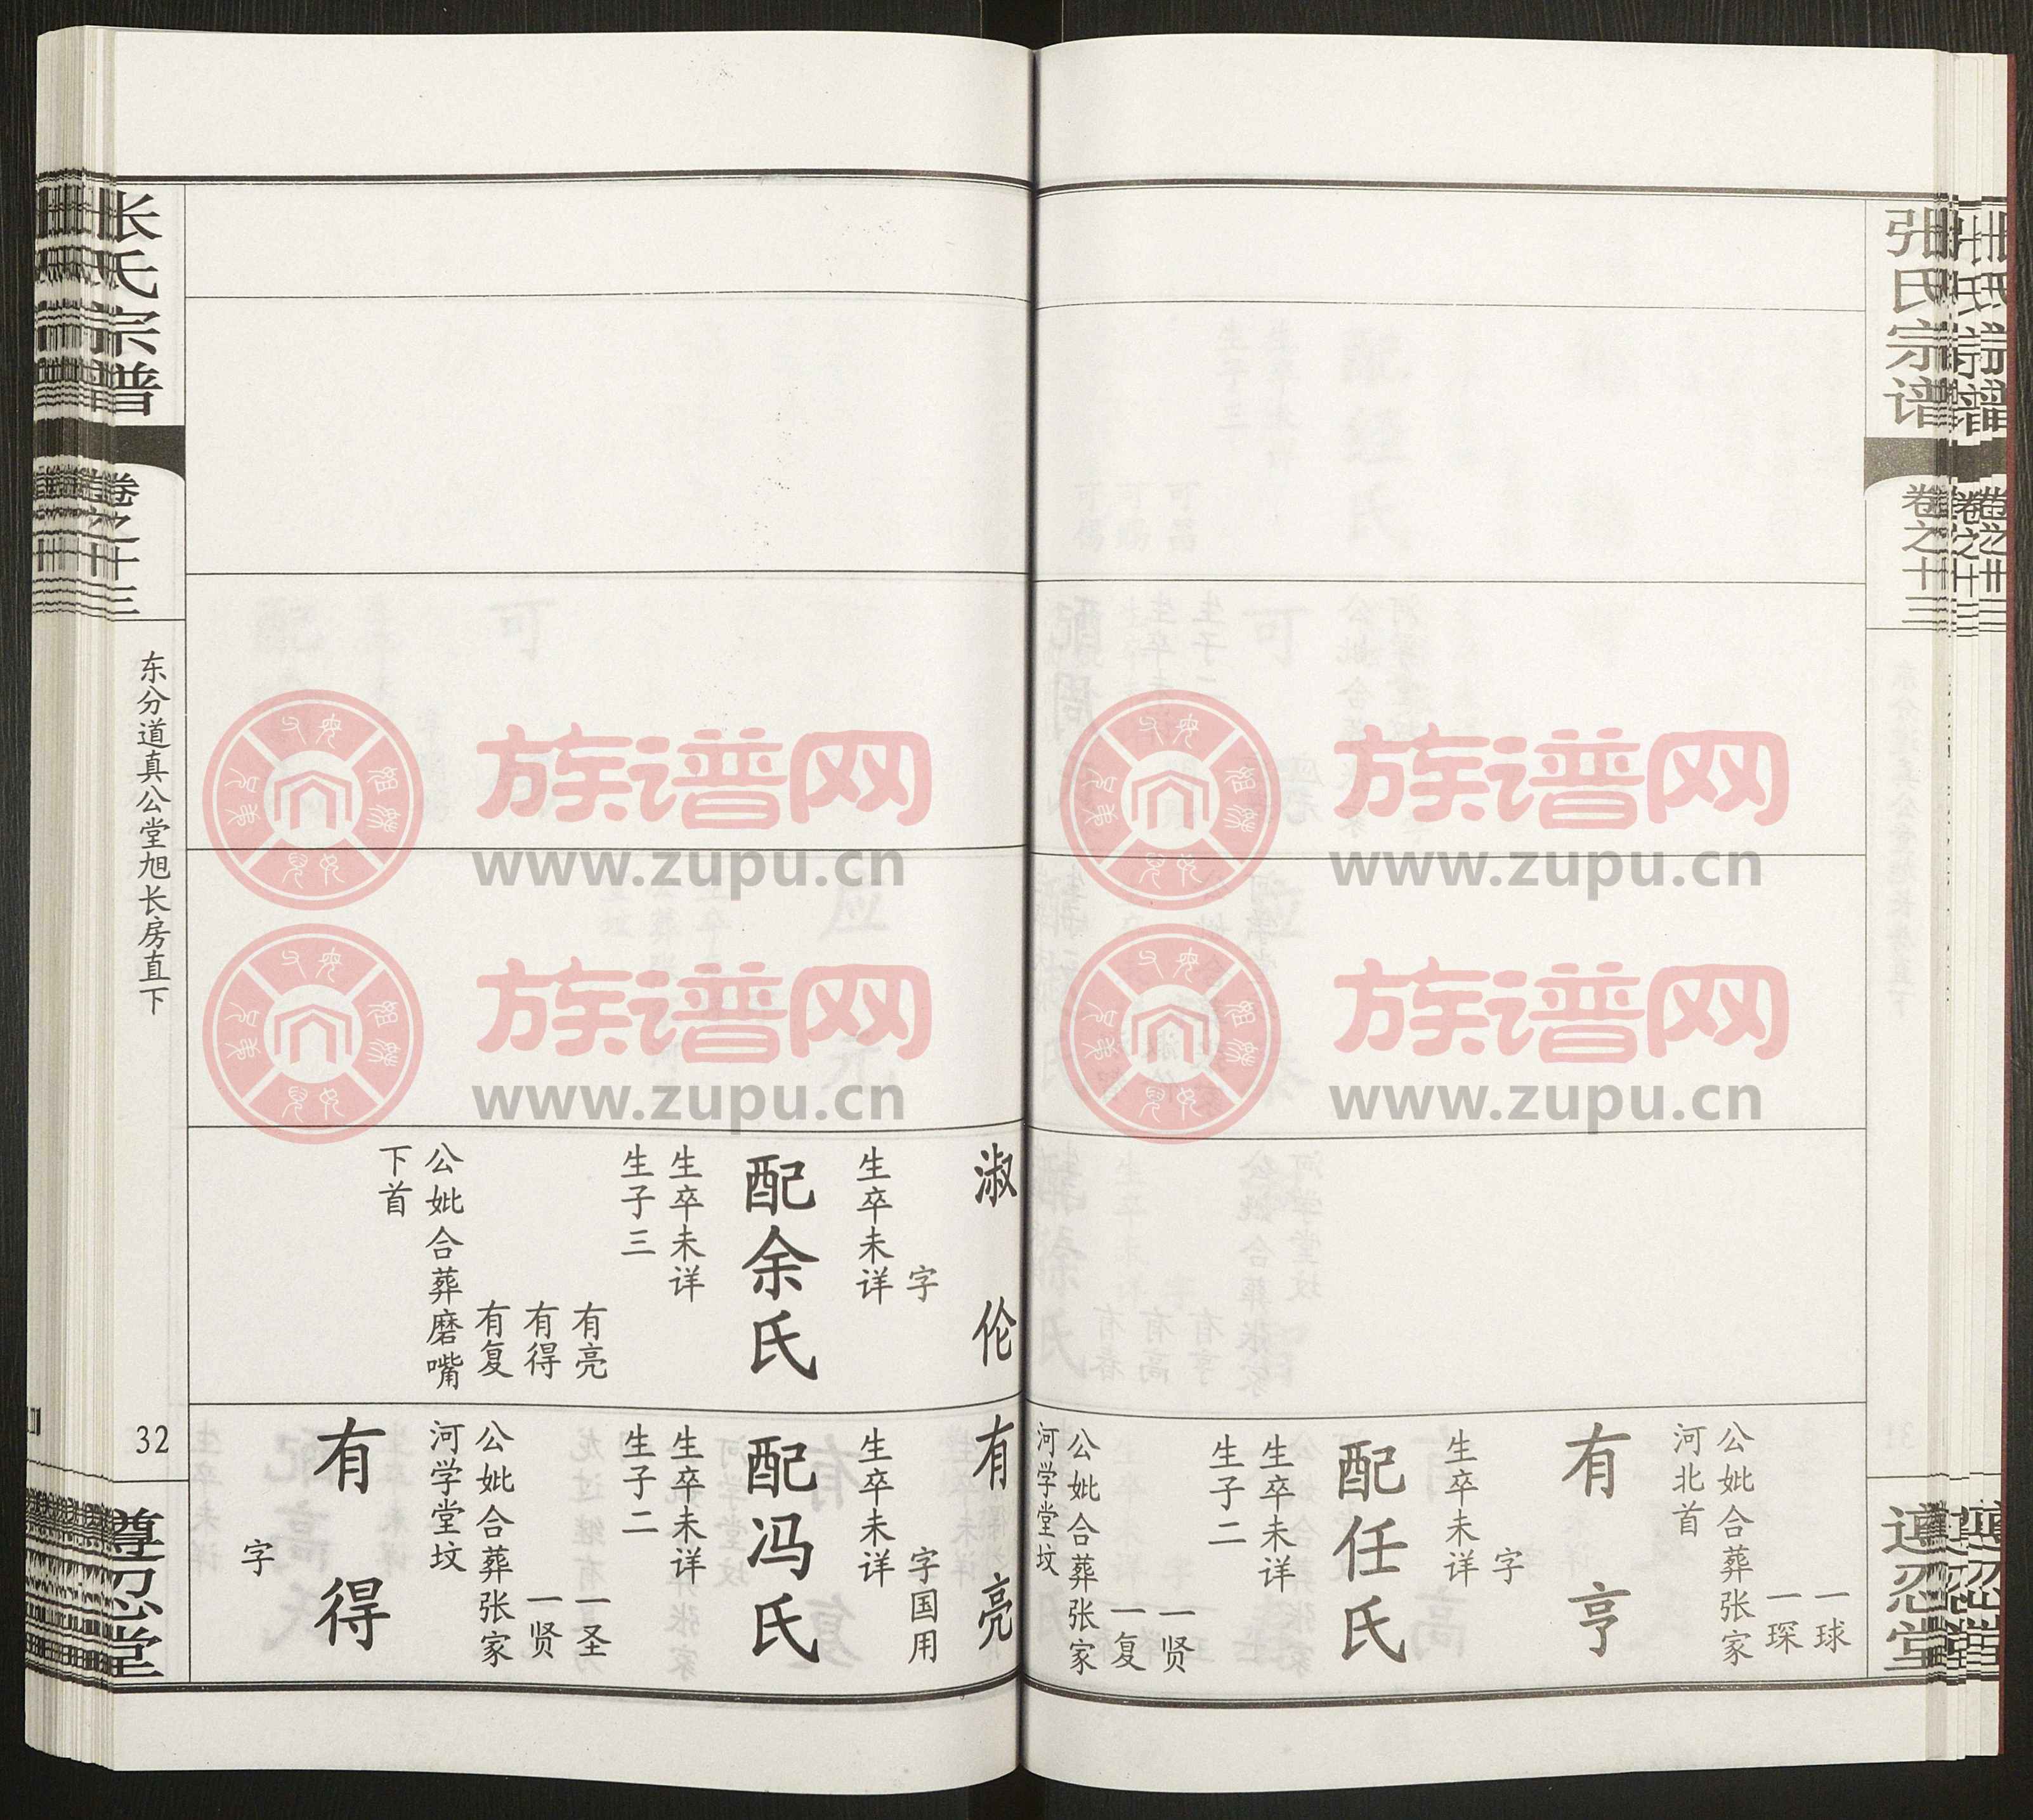 张氏宗谱
卷之十三
遵忍堂
一球
一琛
公妣合葬张家
河北首
有亨
字
生卒未详
配任氏
生卒未详
生子二
一贤
一复
公妣合葬张家
河学堂坟
淑伦
字
生卒未详
配余氏
生卒未详
生子三
有亮
有得
有复
公妣合葬磨嘴
下首
有亮
字国用
生卒未详
配冯氏
生卒未详
生子二
一圣
一贤
公妣合葬张家
河学堂坟
有得
字
张氏宗谱
卷之十三
东分道真公堂旭长房直下
32
遵忍堂
族谱网
www.zupu.cn
族谱网
www.zupu.cn
族谱网
www.zupu.cn
族谱网
www.zupu.cn